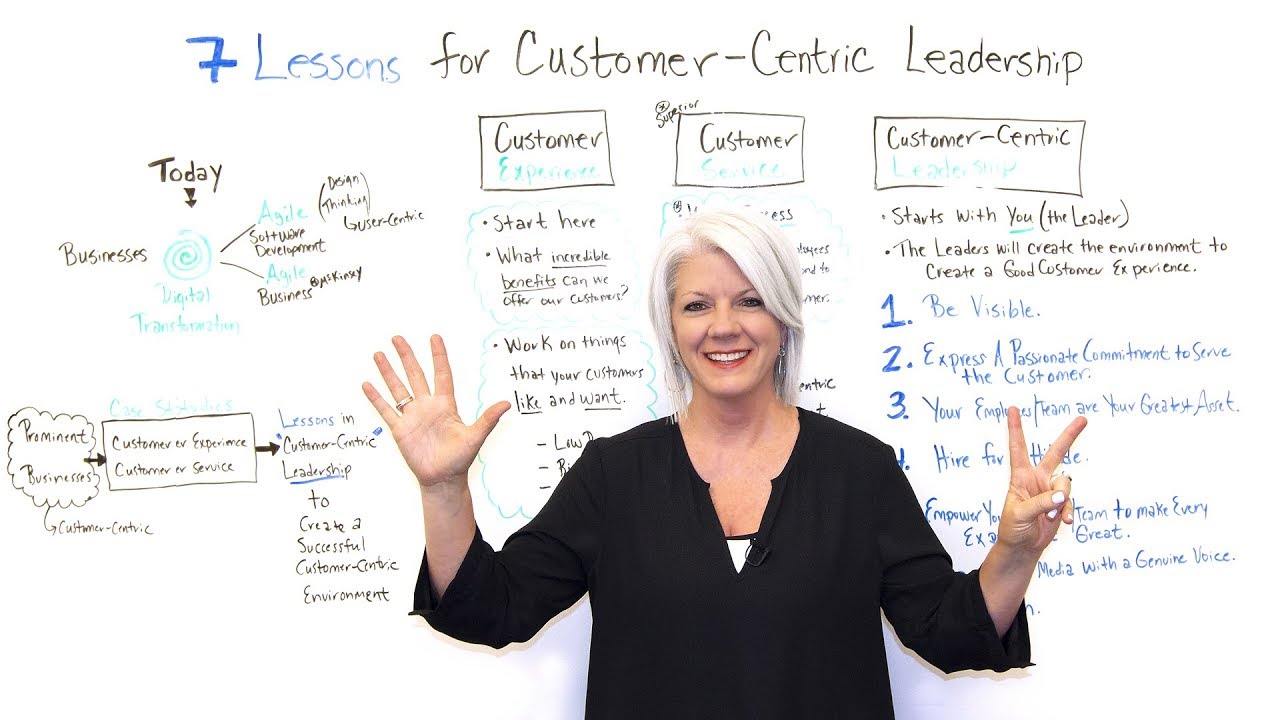 7 Lessons for Customer-Centric Leadership
Today
Businesses
Digital
Transformation
Agile
Software
Development
(Design
Thinking)
User-Centric
Agile
Business
McKinsey
Case Studies
Prominent
Businesses
Customer-Centric
Customer er Experience
Customer er Service
Lessons in
"Customer-Centric"
Leadership
to
Create a
Successful
Customer-Centric
Environment
Customer
Experience
• Start here
• What incredible
benefits can we
offer our customers?
• Work on things
that your customers
like and want.
Superior
Customer
Service
Customer-Centric
Leadership
• Starts with You (the Leader)
• The Leaders will create the environment to
Create a Good Customer Experience.
1. Be Visible.
2. Express A Passionate Commitment to Serve
the Customer.
3. Your Employees/Team are Your Greatest Asset.
Hire for
Empower
Team to make Every
Great.
Media with a Genuine Voice.